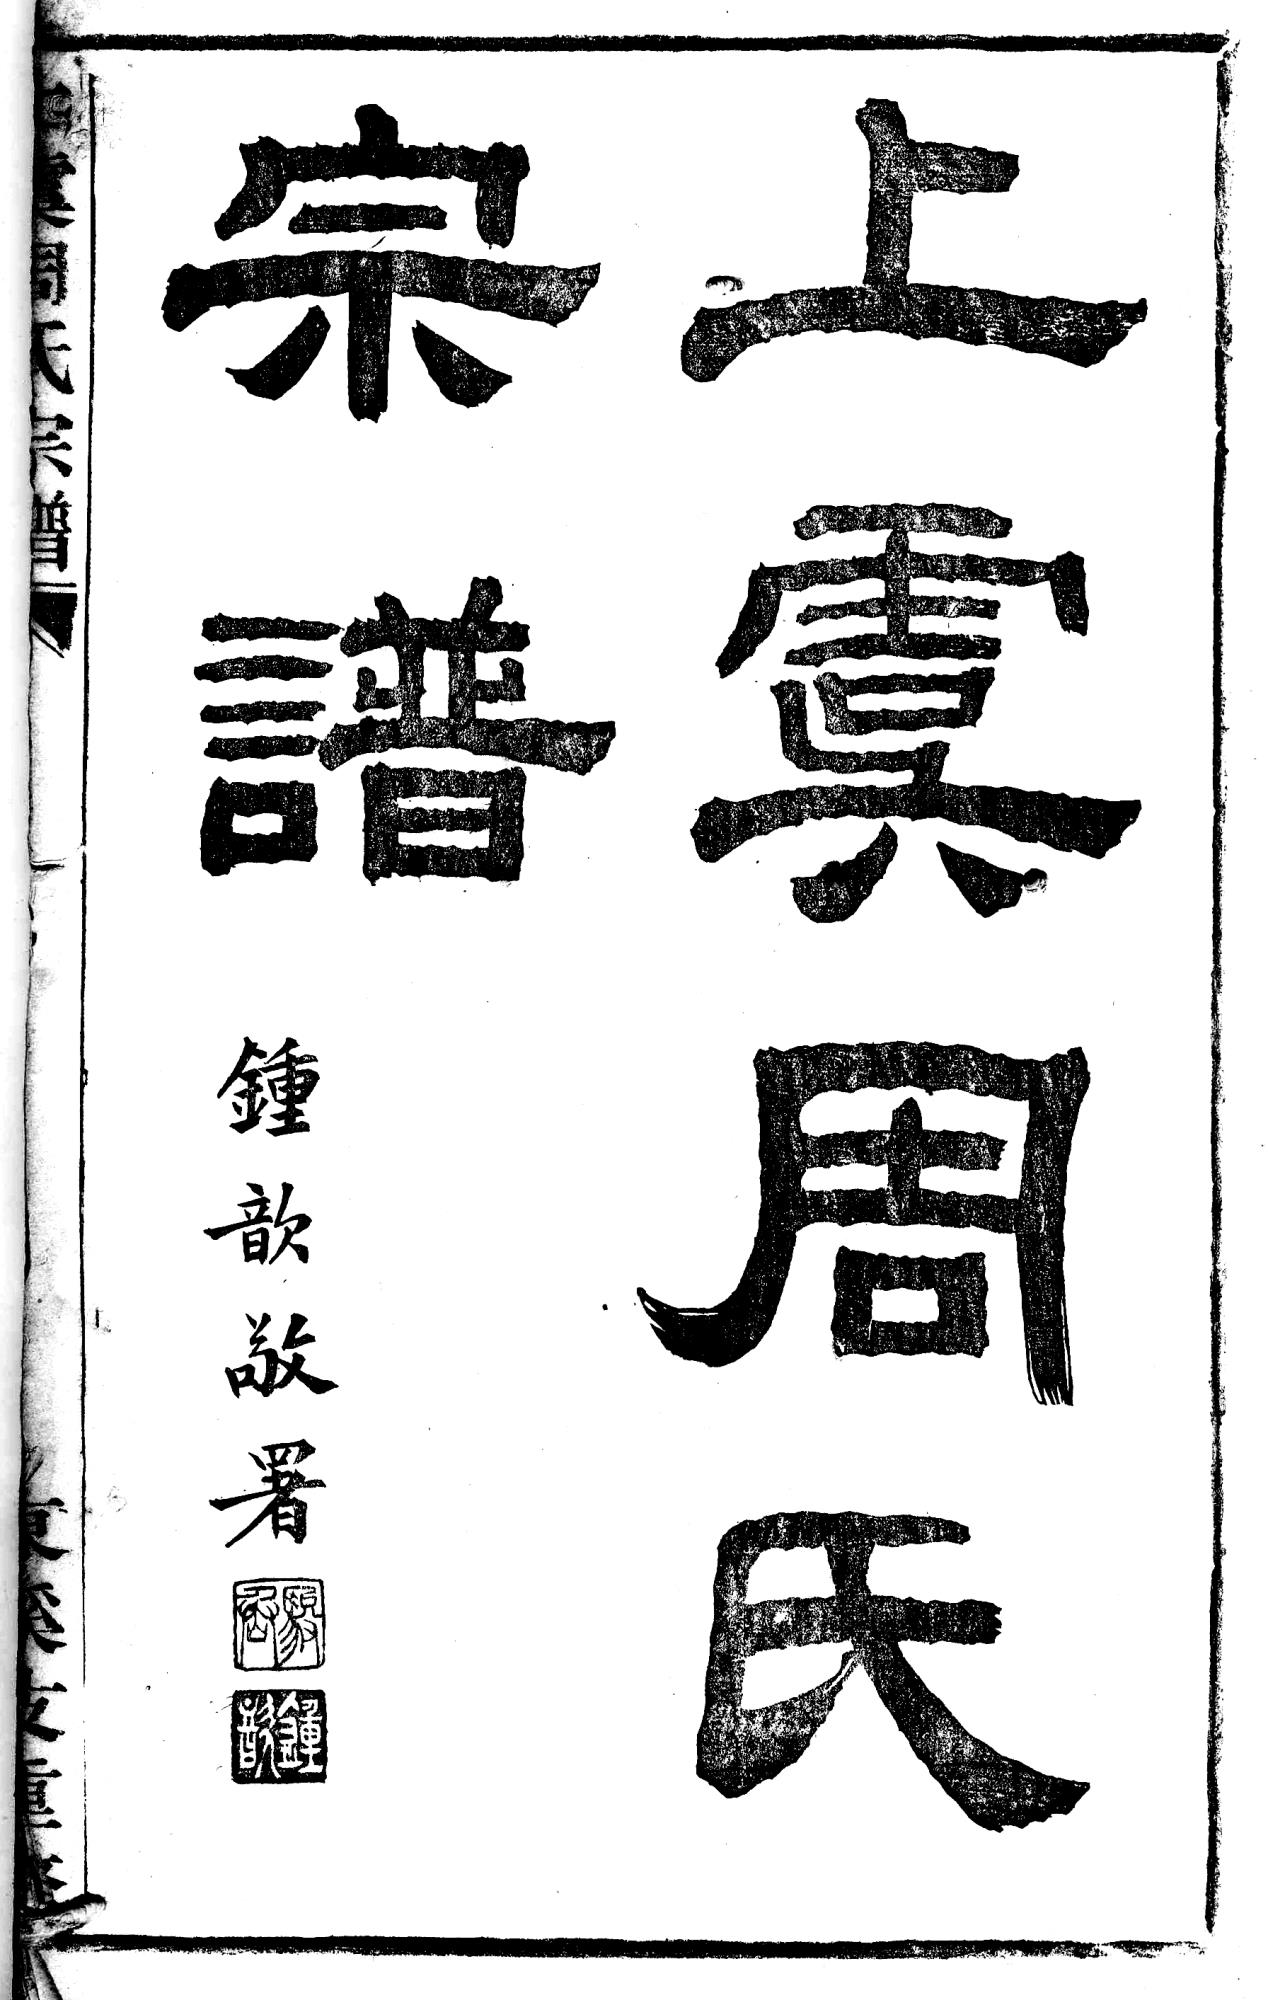 上虞周氏
宗譜
鍾歆敬署
鍾歆
上虞周氏宗譜